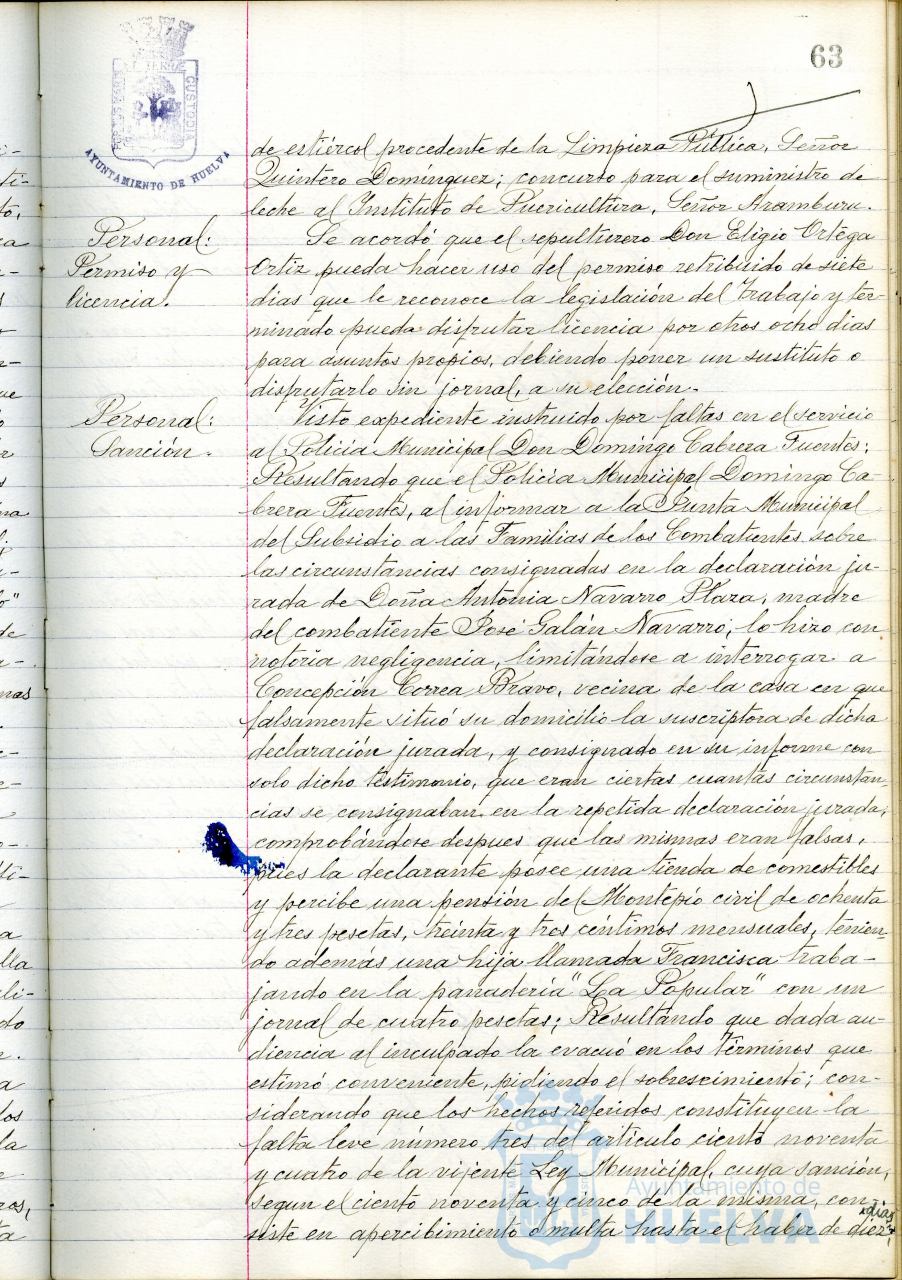 63
AYUNTAMIENTO DE HUELVA
de estiércol procedente de la Limpieza Pública, Señor
Quintero Domínguez; concurso para el suministro de
leche al Instituto de Puericultura, Señor Aramburu.
Personal:
Permiso y
licencia.
Se acordó que el sepulturero Don Eligio Ortega
Ortiz pueda hacer uso del permiso retribuido de siete
dias que le reconoce la legislación del Trabajo y ter-
minado pueda disfrutar licencia por otros ocho dias
para asuntos propios, debiendo poner un sustituto o
disfrutarlo sin jornal, a su elección.
Personal:
Sanción.
Visto expediente instruido por faltas en el servicio
al Policía Municipal Don Domingo Cabrera Fuentes;
Resultando que el Policía Municipal Domingo Ca-
brera Fuentes, al informar a la Junta Municipal
del Subsidio a las Familias de los Combatientes sobre
las circunstancias consignadas en la declaración ju-
rada de Doña Antonia Navarro Plaza, madre
del combatiente José Galán Navarro, lo hizo con
notoria negligencia, limitándose a interrogar a
Concepción Correa Bravo, vecina de la casa en que
falsamente situó su domicilio la suscriptora de dicha
declaración jurada, y consignado en su informe con
solo dicho testimonio, que eran ciertas cuantas circunstan-
cias se consignaban en la repetida declaración jurada,
comprobándose despues que las mismas eran falsas,
pues la declarante posee una tienda de comestibles
y percibe una pensión del Montepío civil de ochenta
y tres pesetas, treinta y tres céntimos mensuales, tenien-
do ademas una hija llamada Francisca traba-
jando en la panadería "La Popular" con un
jornal de cuatro pesetas; Resultando que dada au-
diencia al inculpado la evacuó en los términos que
estimó conveniente, pidiendo el sobreseimiento; con-
siderando que los hechos referidos constituyen la
falta leve número tres del artículo ciento noventa
y cuatro de la vijente Ley Municipal, cuya sanción,
segun el ciento noventa y cinco de la misma, con-
siste en apercibimiento o multa hasta el haber de diez dias,
Ayuntamiento de
HUELVA